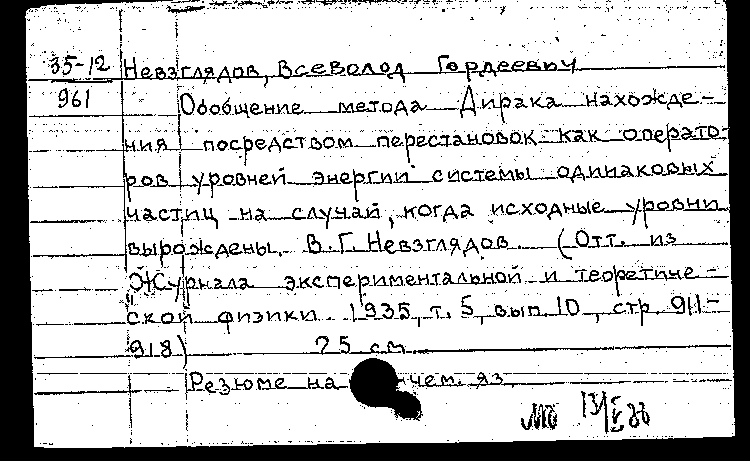 35-12 Невзглядов, Всеволод Гордеевич
961 Обобщение метода Дирака нахожде-
ния посредством перестановок как операто-
ров уровней энергии системы одинаковых
частиц на случай, когда исходные уровни
вырождены. В. Г. Невзглядов. (Отт. из
"Журнала экспериментальной и теоретиче-
ской физики. 1935, т. 5, вып. 10, стр. 911-
918) 25 см.
Резюме на яз.